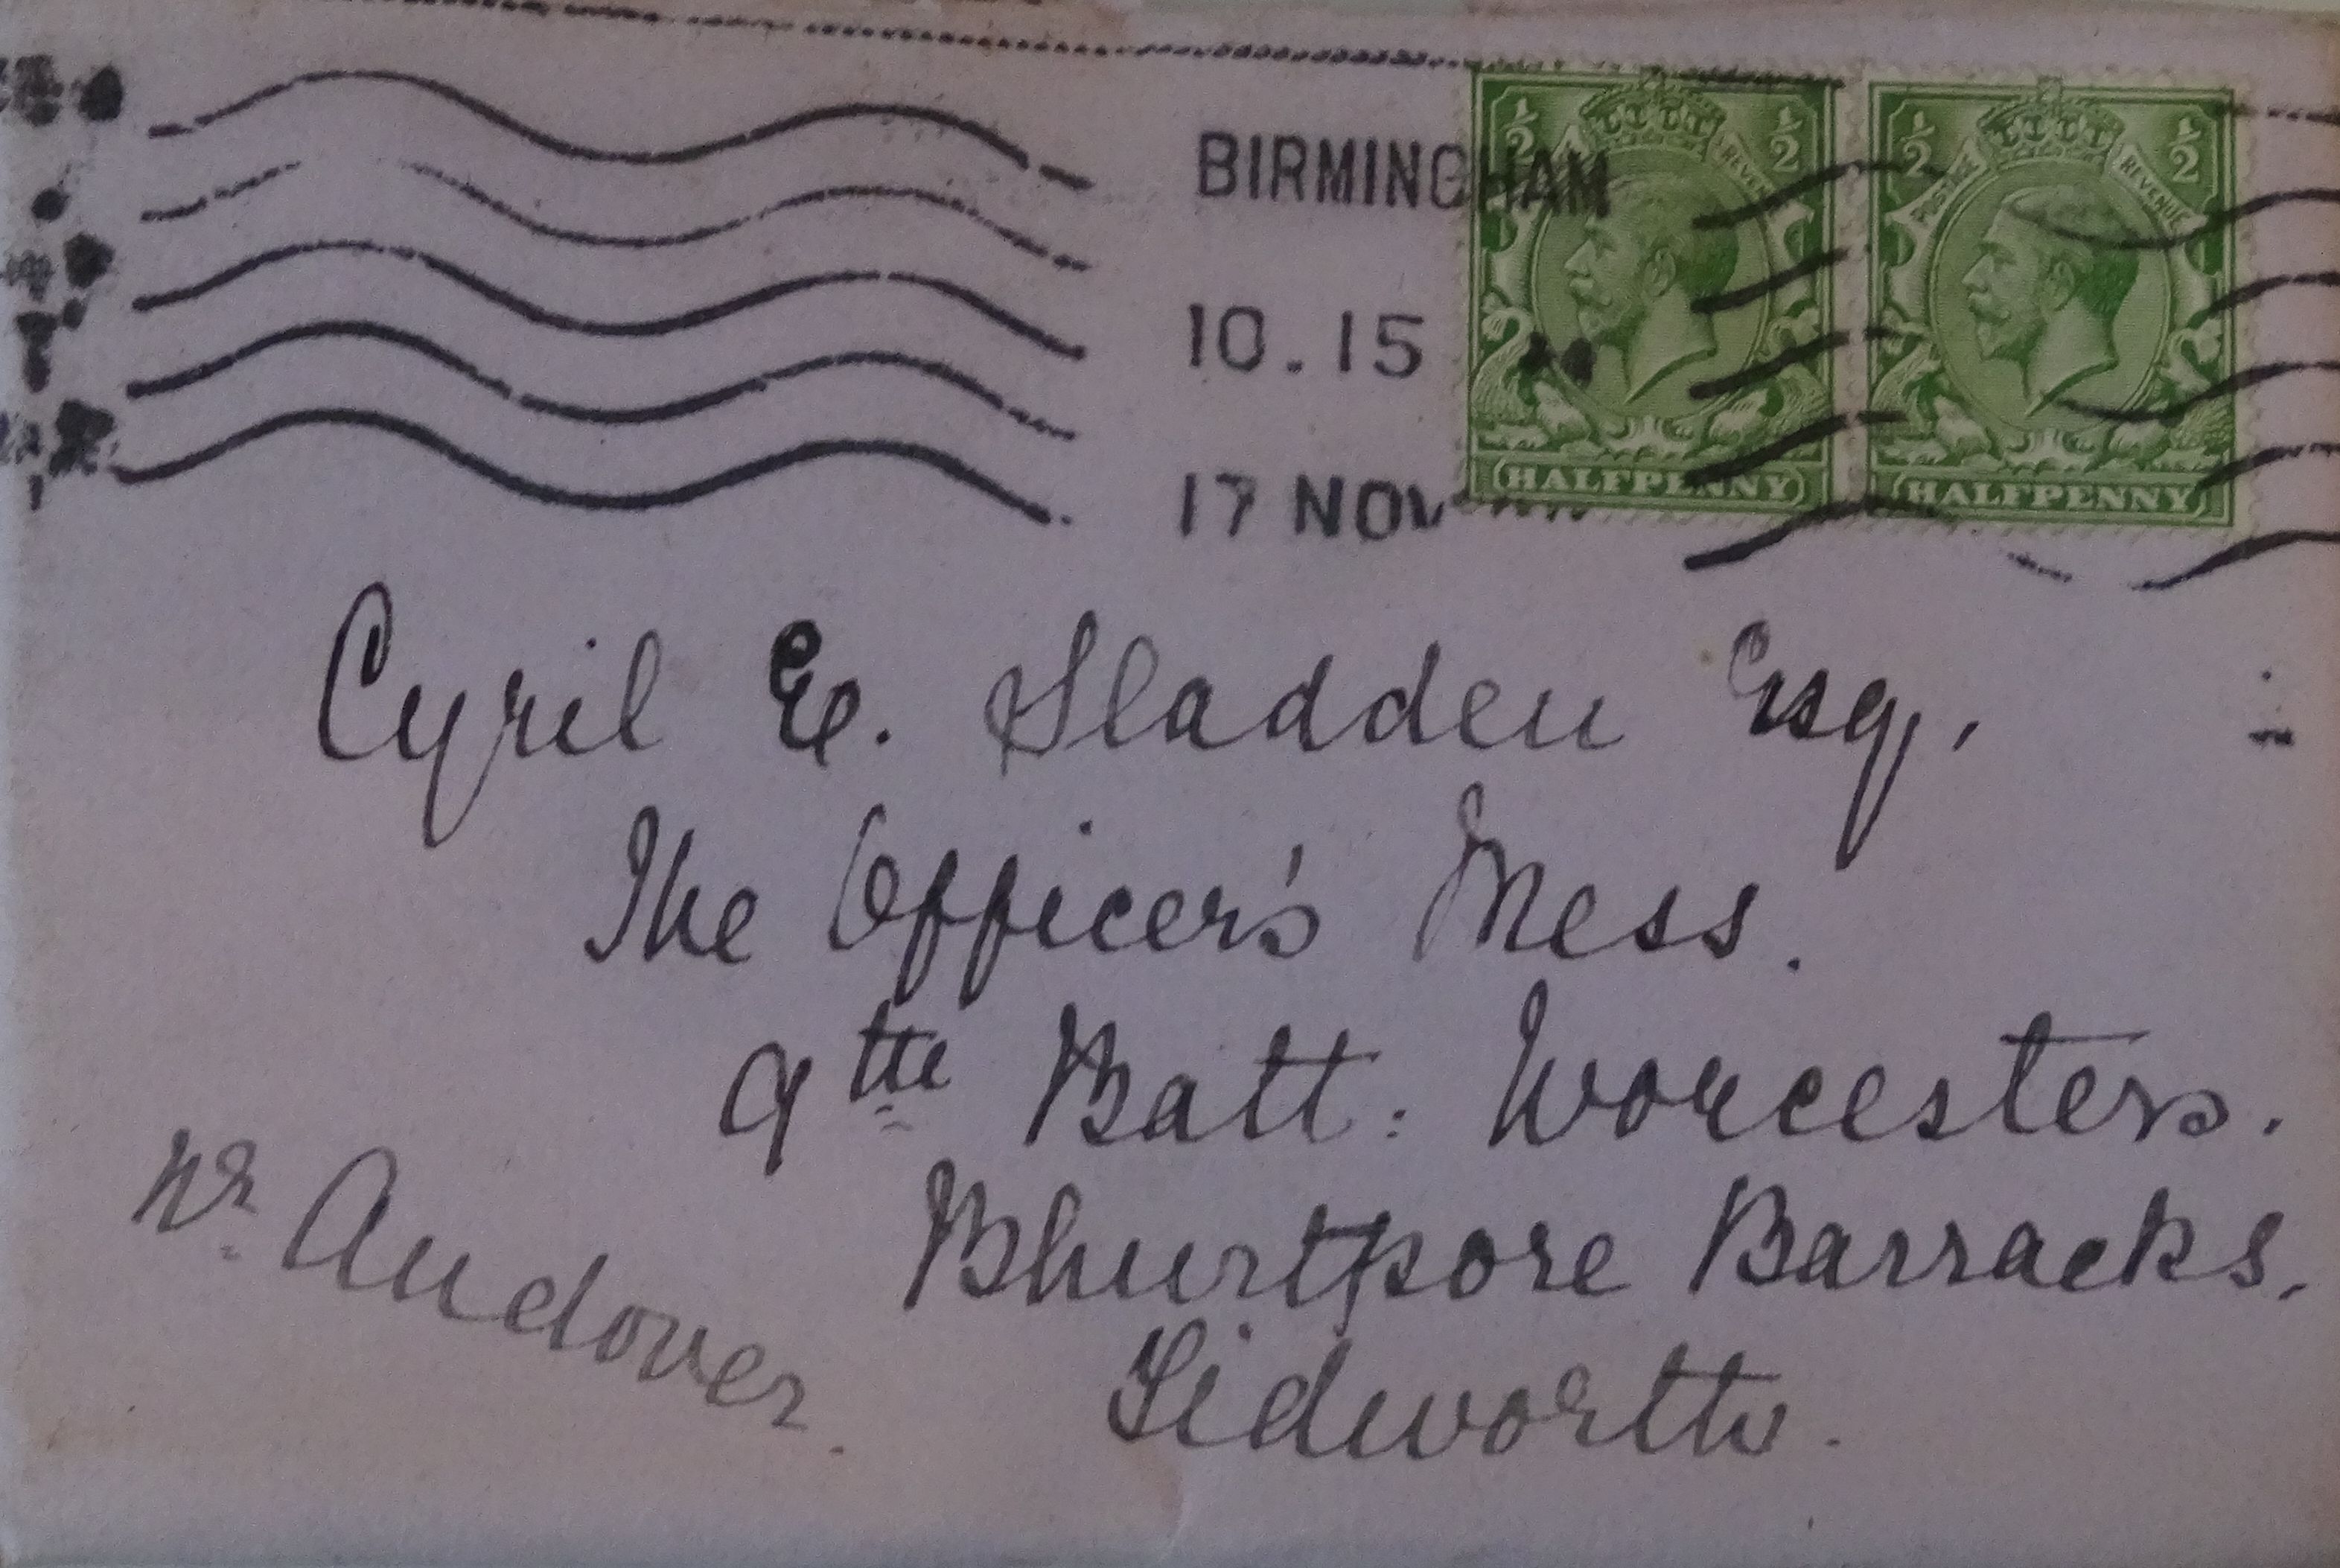 BIRMINGHAM
10.15
17 NOV
1/2 REVENUE 1/2
HALFPENNY
1/2 POSTAGE REVENUE 1/2
HALFPENNY
Cyril E. Sladden Esq,
The Officer's Mess.
9th Batt: Worcesters.
Bhurtpore Barracks.
Tidworth.
Nr. Andover.